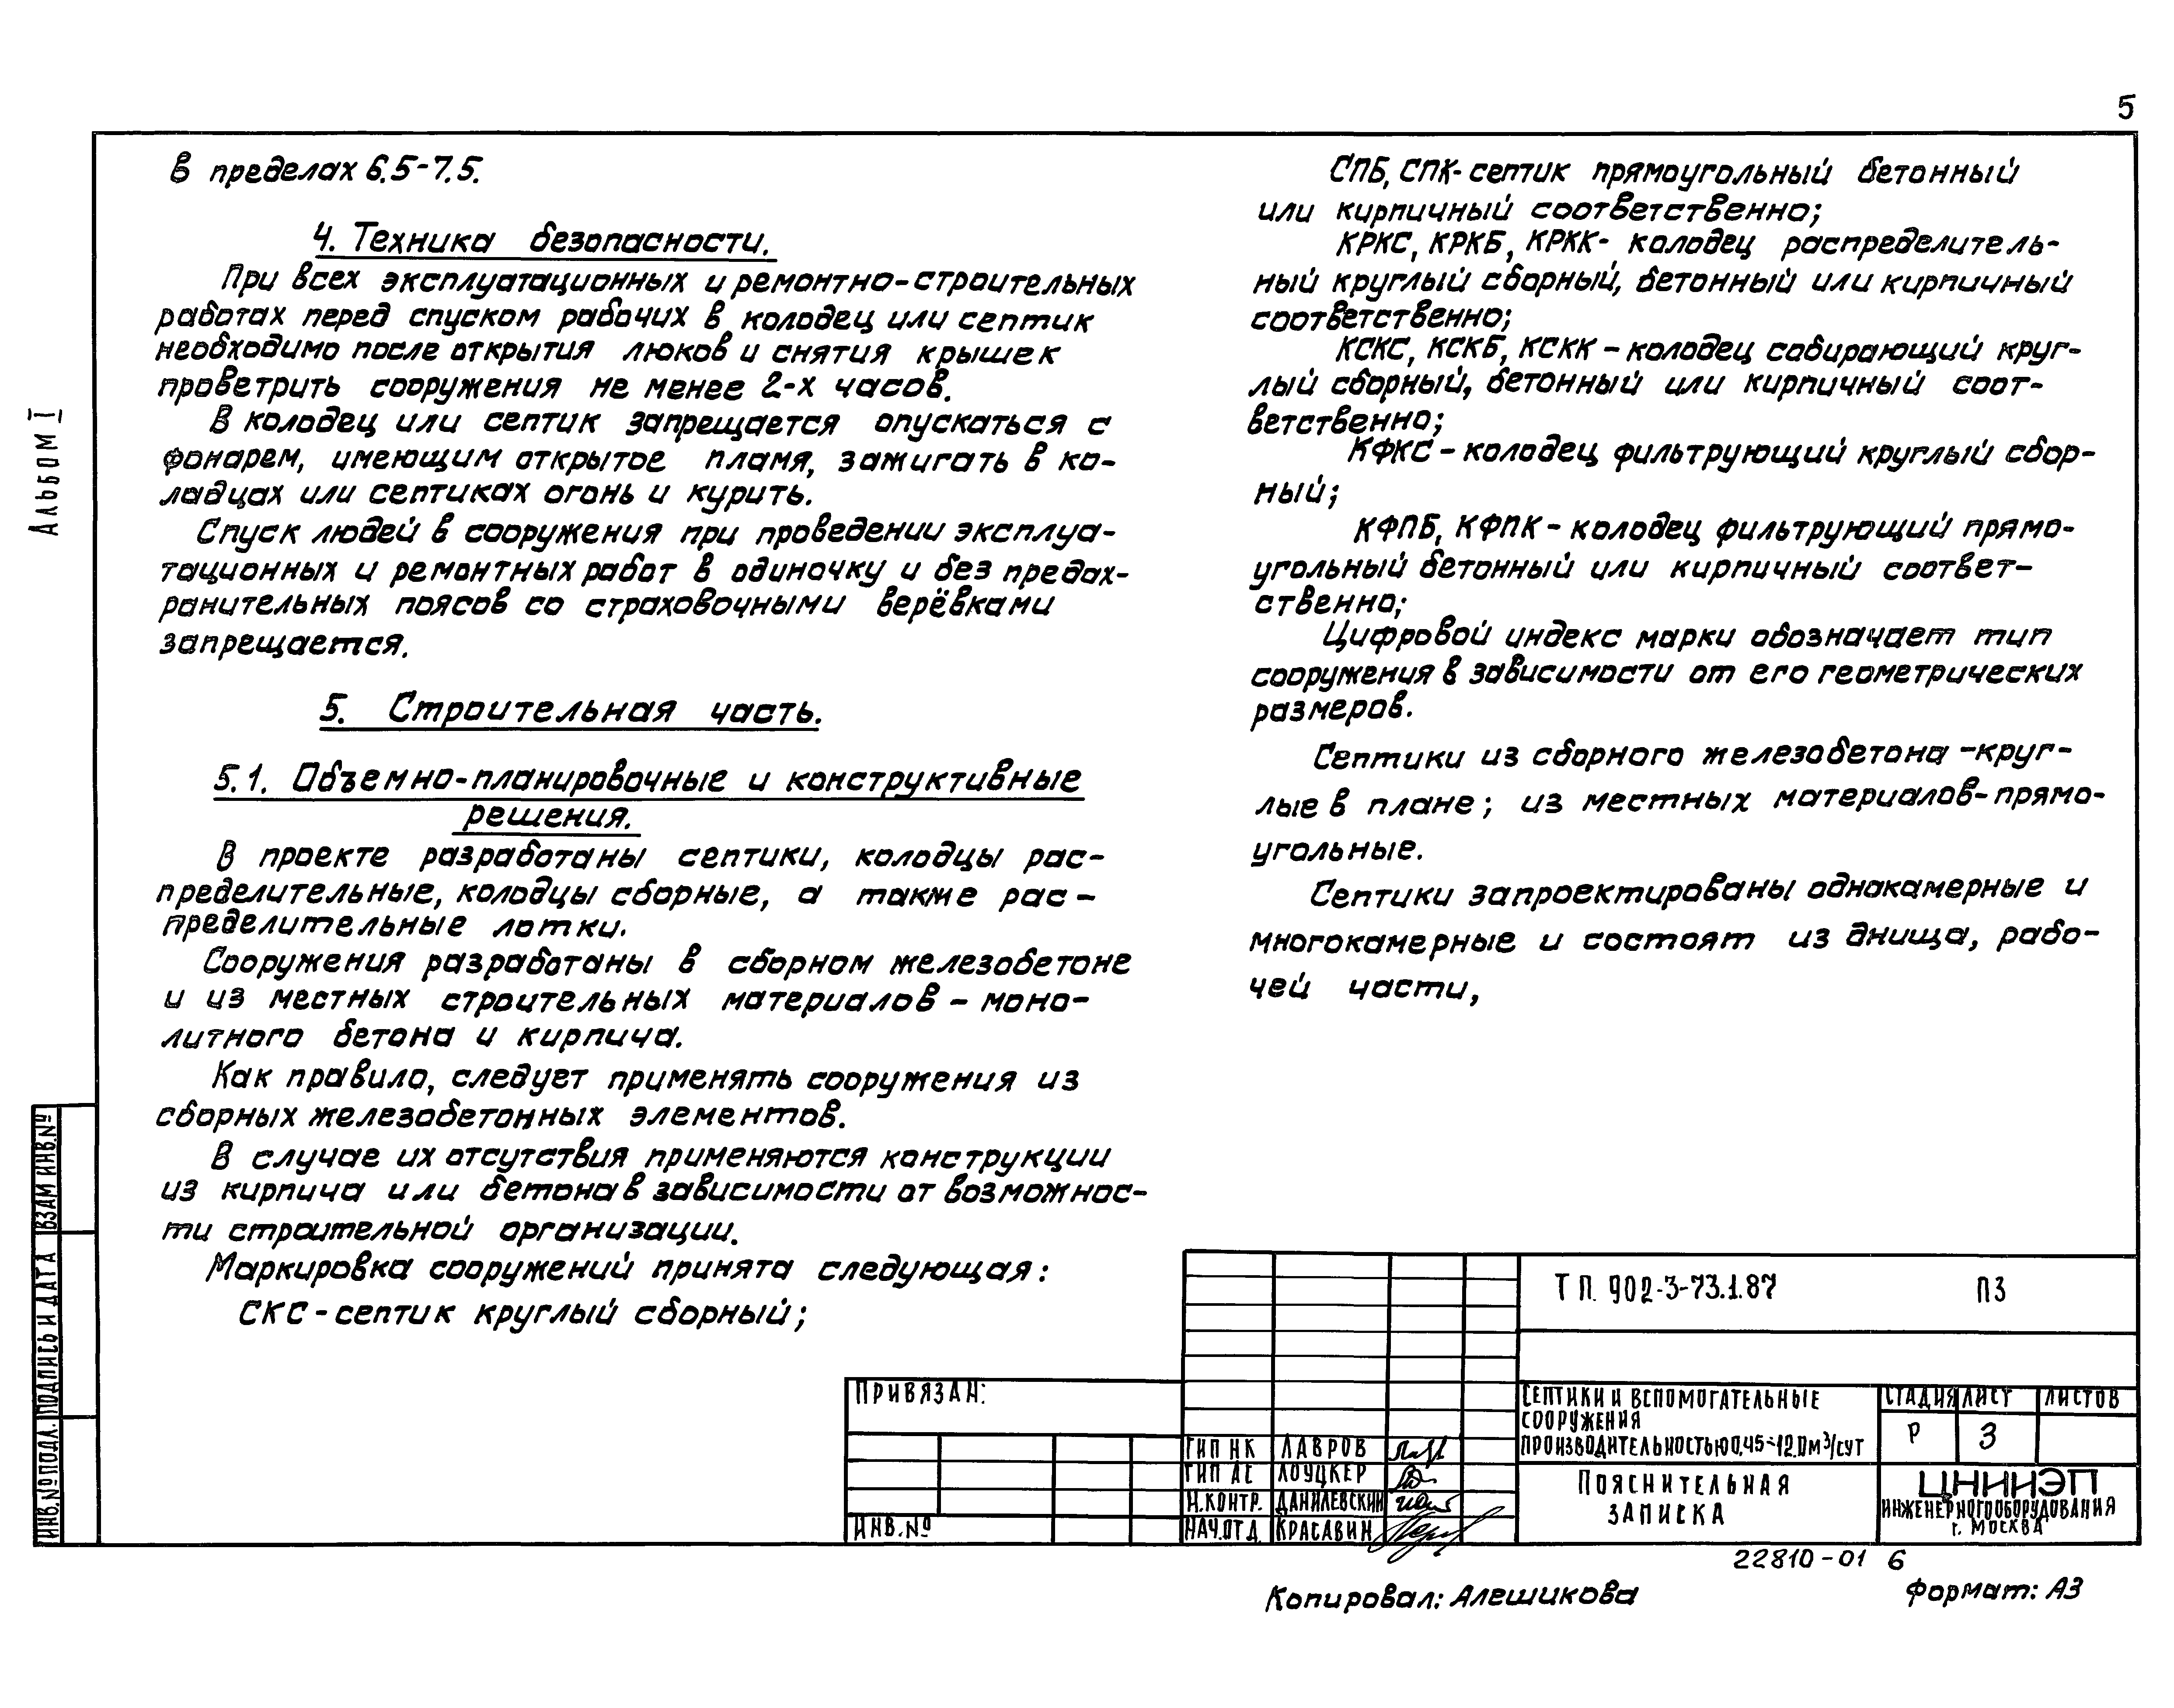 5
Альбом I
в пределах 6.5-7.5.
4. Техника безопасности.
При всех эксплуатационных и ремонтно-строительных
работах перед спуском рабочих в колодец или септик
необходимо после открытия люков и снятия крышек
проветрить сооружения не менее 2-х часов.
В колодец или септик запрещается опускаться с
фонарем, имеющим открытое пламя, зажигать в ко-
лодцах или септиках огонь и курить.
Спуск людей в сооружения при проведении эксплуа-
тационных и ремонтных работ в одиночку и без предох-
ранительных поясов со страховочными верёвками
запрещается.
5. Строительная часть.
5.1. Объемно-планировочные и конструктивные
решения.
В проекте разработаны септики, колодцы рас-
пределительные, колодцы сборные, а также рас-
пределительные лотки.
Сооружения разработаны в сборном железобетоне
и из местных строительных материалов - моно-
литного бетона и кирпича.
Как правило, следует применять сооружения из
сборных железобетонных элементов.
В случае их отсутствия применяются конструкции
из кирпича или бетона в зависимости от возможнос-
ти строительной организации.
Маркировка сооружений принята следующая:
СКС-септик круглый сборный;
СПБ, СПК-септик прямоугольный бетонный
или кирпичный соответственно;
КРКС, КРКБ, КРКК- колодец распределитель-
ный круглый сборный, бетонный или кирпичный
соответственно;
КСКС, КСКБ, КСКК - колодец собирающий круг-
лый сборный, бетонный или кирпичный соот-
ветственно;
КФКС - колодец фильтрующий круглый сбор-
ный;
КФПБ, КФПК - колодец фильтрующий прямо-
угольный бетонный или кирпичный соответ-
ственно;
Цифровой индекс марки обозначает тип
сооружения в зависимости от его геометрических
размеров.
Септики из сборного железобетона -круг-
лые в плане; из местных материалов-прямо-
угольные.
Септики запроектированы однокамерные и
многокамерные и состоят из днища, рабо-
чей части,
ИНВ.№ПОДЛ. ПОДПИСЬ И ДАТА ВЗАМ ИНВ.№
ПРИВЯЗАН:
ИНВ.№
ГИП НК ЛАВРОВ
ГИП АС ЛОУЦКЕР
Н.КОНТР. ДАНИЛЕВСКИЙ
НАЧ.ОТД. КРАСАВИН
ТП. 902-3-73.1.87 ПЗ
СЕПТИКИ И ВСПОМОГАТЕЛЬНЫЕ
СООРУЖЕНИЯ
ПРОИЗВОДИТЕЛЬНОСТЬЮ 0,45÷12.0м³/сут
СТАДИЯ ЛИСТ ЛИСТОВ
Р 3
ПОЯСНИТЕЛЬНАЯ
ЗАПИСКА
ЦНИИЭП
ИНЖЕНЕРНОГО ОБОРУДОВАНИЯ
г. МОСКВА
22810-01 6
Копировал: Алешикова
Формат: А3